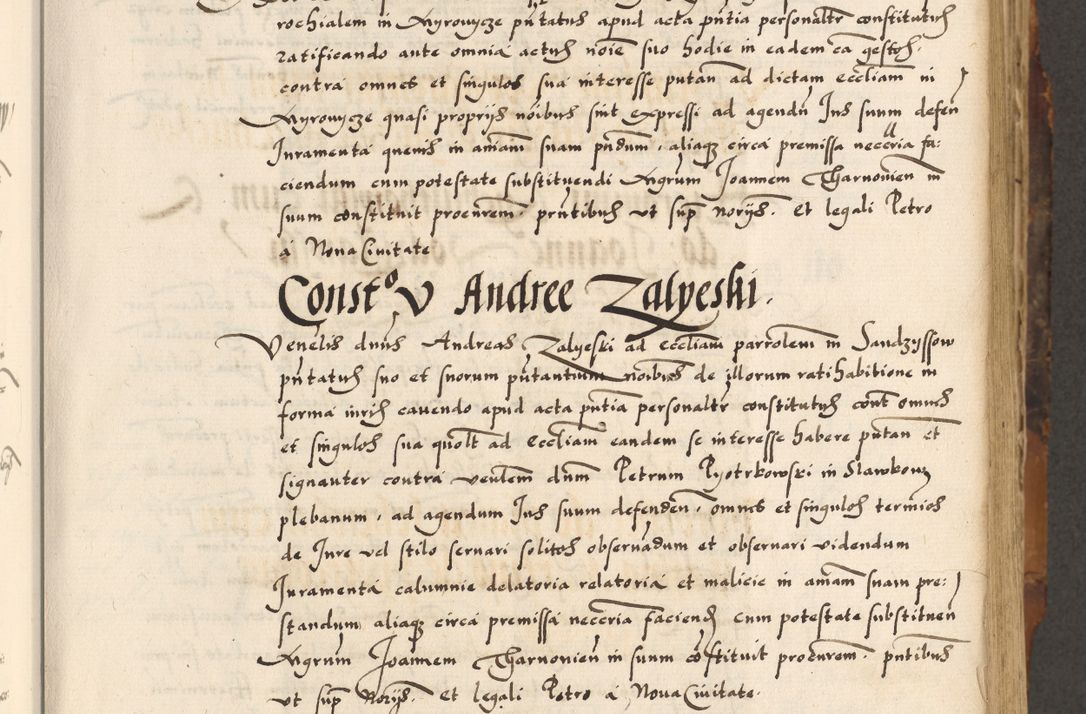 rochialem in Myrowycze pñtatus apud acta pñtia personalr constitutus
ratificando ante omnia actus noie suo hodie in eadem ca gestos.
contra omnes et singulos sua interesse putan ad dictam eccliam in
Myrowycze quasi proprijs noibus sint expressi ad agendu Jus suum defen
Juramenta quevis in aniam suam pñdum, aliaqz circa premissa necessria fa:
ciendum cum potestate substituendi Mgrum Joannem Tharnovien in
suum constituit procurem. pñtibus ut sup norijs. Et legali Petro
a Nova Civitate
Constᵒ v Andree Zalyeski.
Venelis dnus Andreas Zalyeski ad eccliam parrolem in Sandzyssow
pñtatus suo et suorum pñtantium noibus de illorum ratihabitione in
forma iuris cavendo apud acta pñtia personalr constitutus cont omnes
et singulos sua quolt ad Eccliam eandem se interesse habere putan et
signanter contra venlem dnm Petrum Pyotrkowski in Slawkow
plebanum, ad agendum Jus suum defenden, omnes et singulos termios
de Jure vel stilo servari solitos observadum et observari videndum
Juramenta calumnie delatoria relatoria et malicie in aniam suam pre:
standum aliaqz circa premissa necesria faciend cum potestate substituen
Mgrum Joannem Tharnovien in suum constituit procurem. pñtibus
ut sup Norijs. Et legali Petro a Nova Civitate.